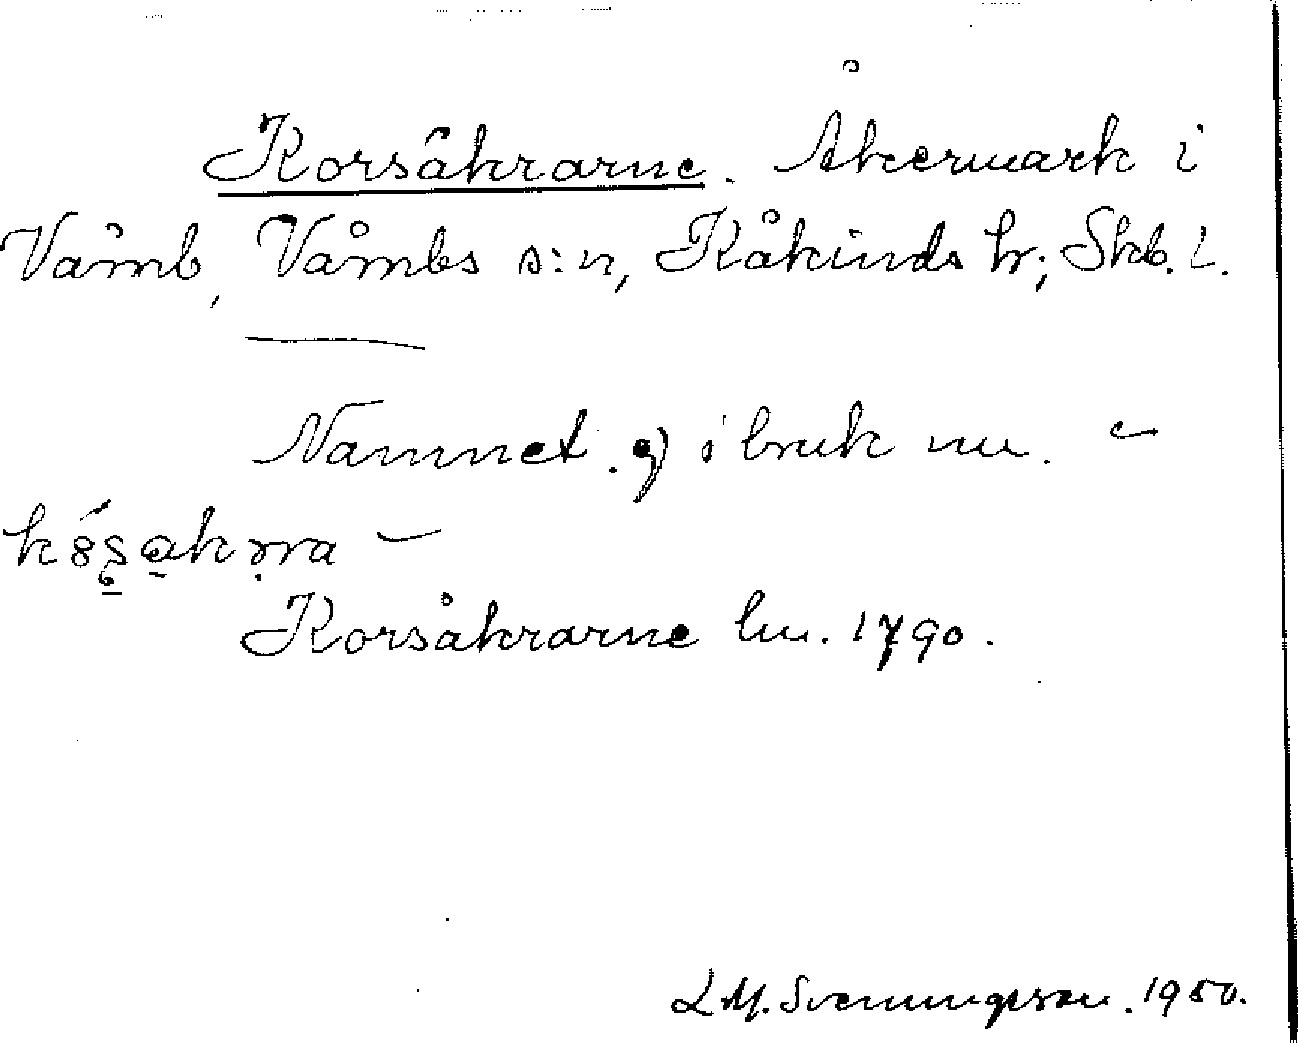 Korsåkrarne. Åkermark i
Våmb, Våmbs s:n, Kåkinds hr; Skb. l.
Namnet ej i bruk nu. –
–
Korsåkrarne lm. 1790.
L M. Svenungsson. 1950.